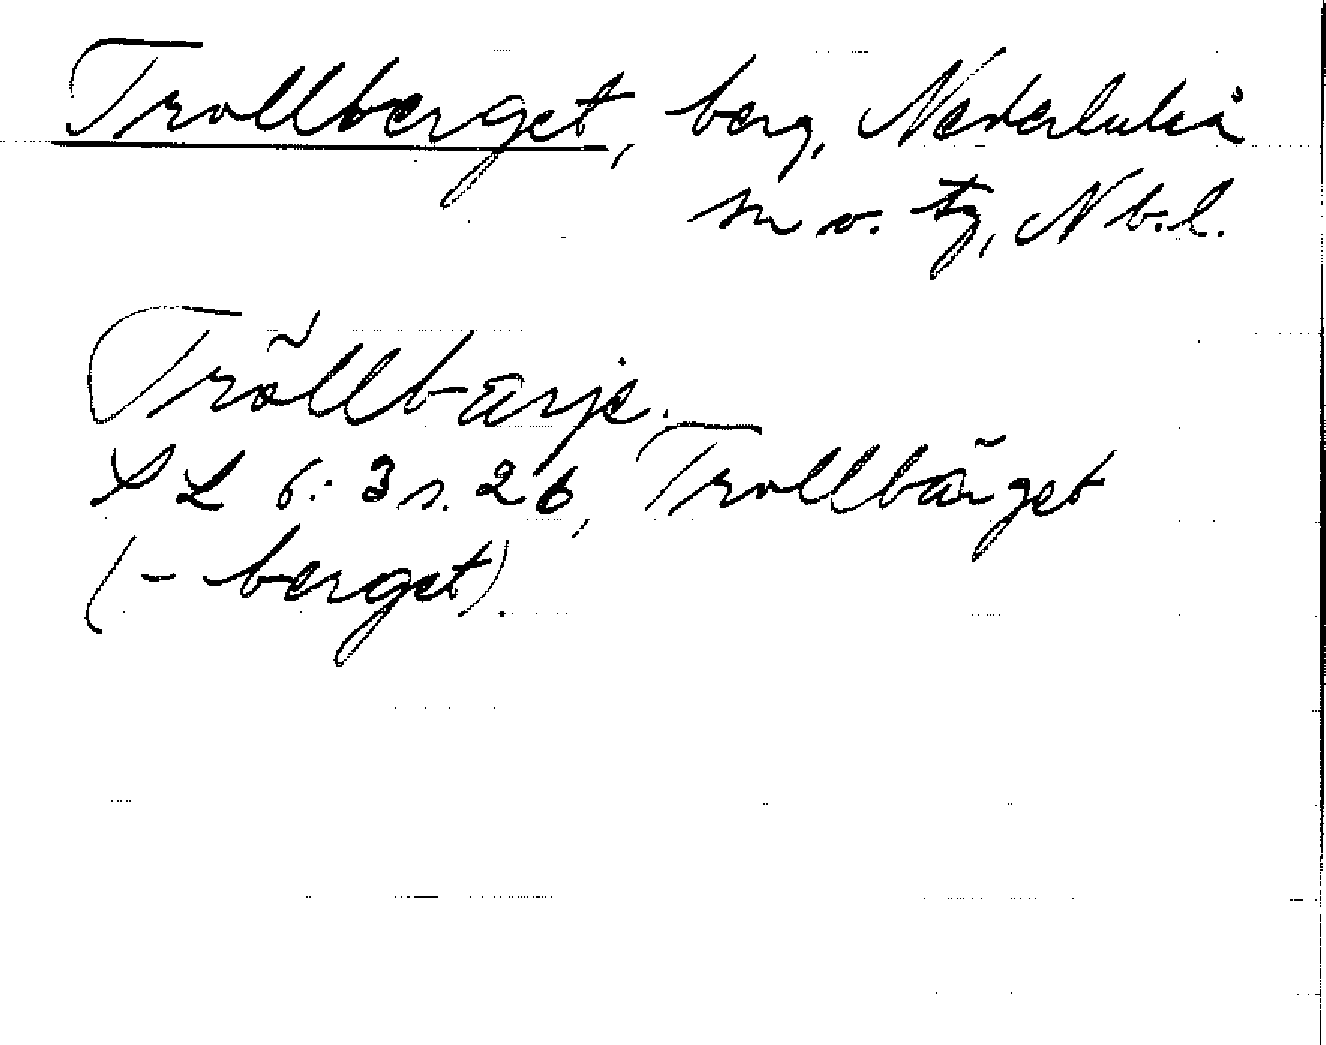 Trollberget, berg, Nederluleå
sn o. tg, Nb.l.
Tròllbärje.
SL 6:3 s. 26, Trollbärget
(--berget).